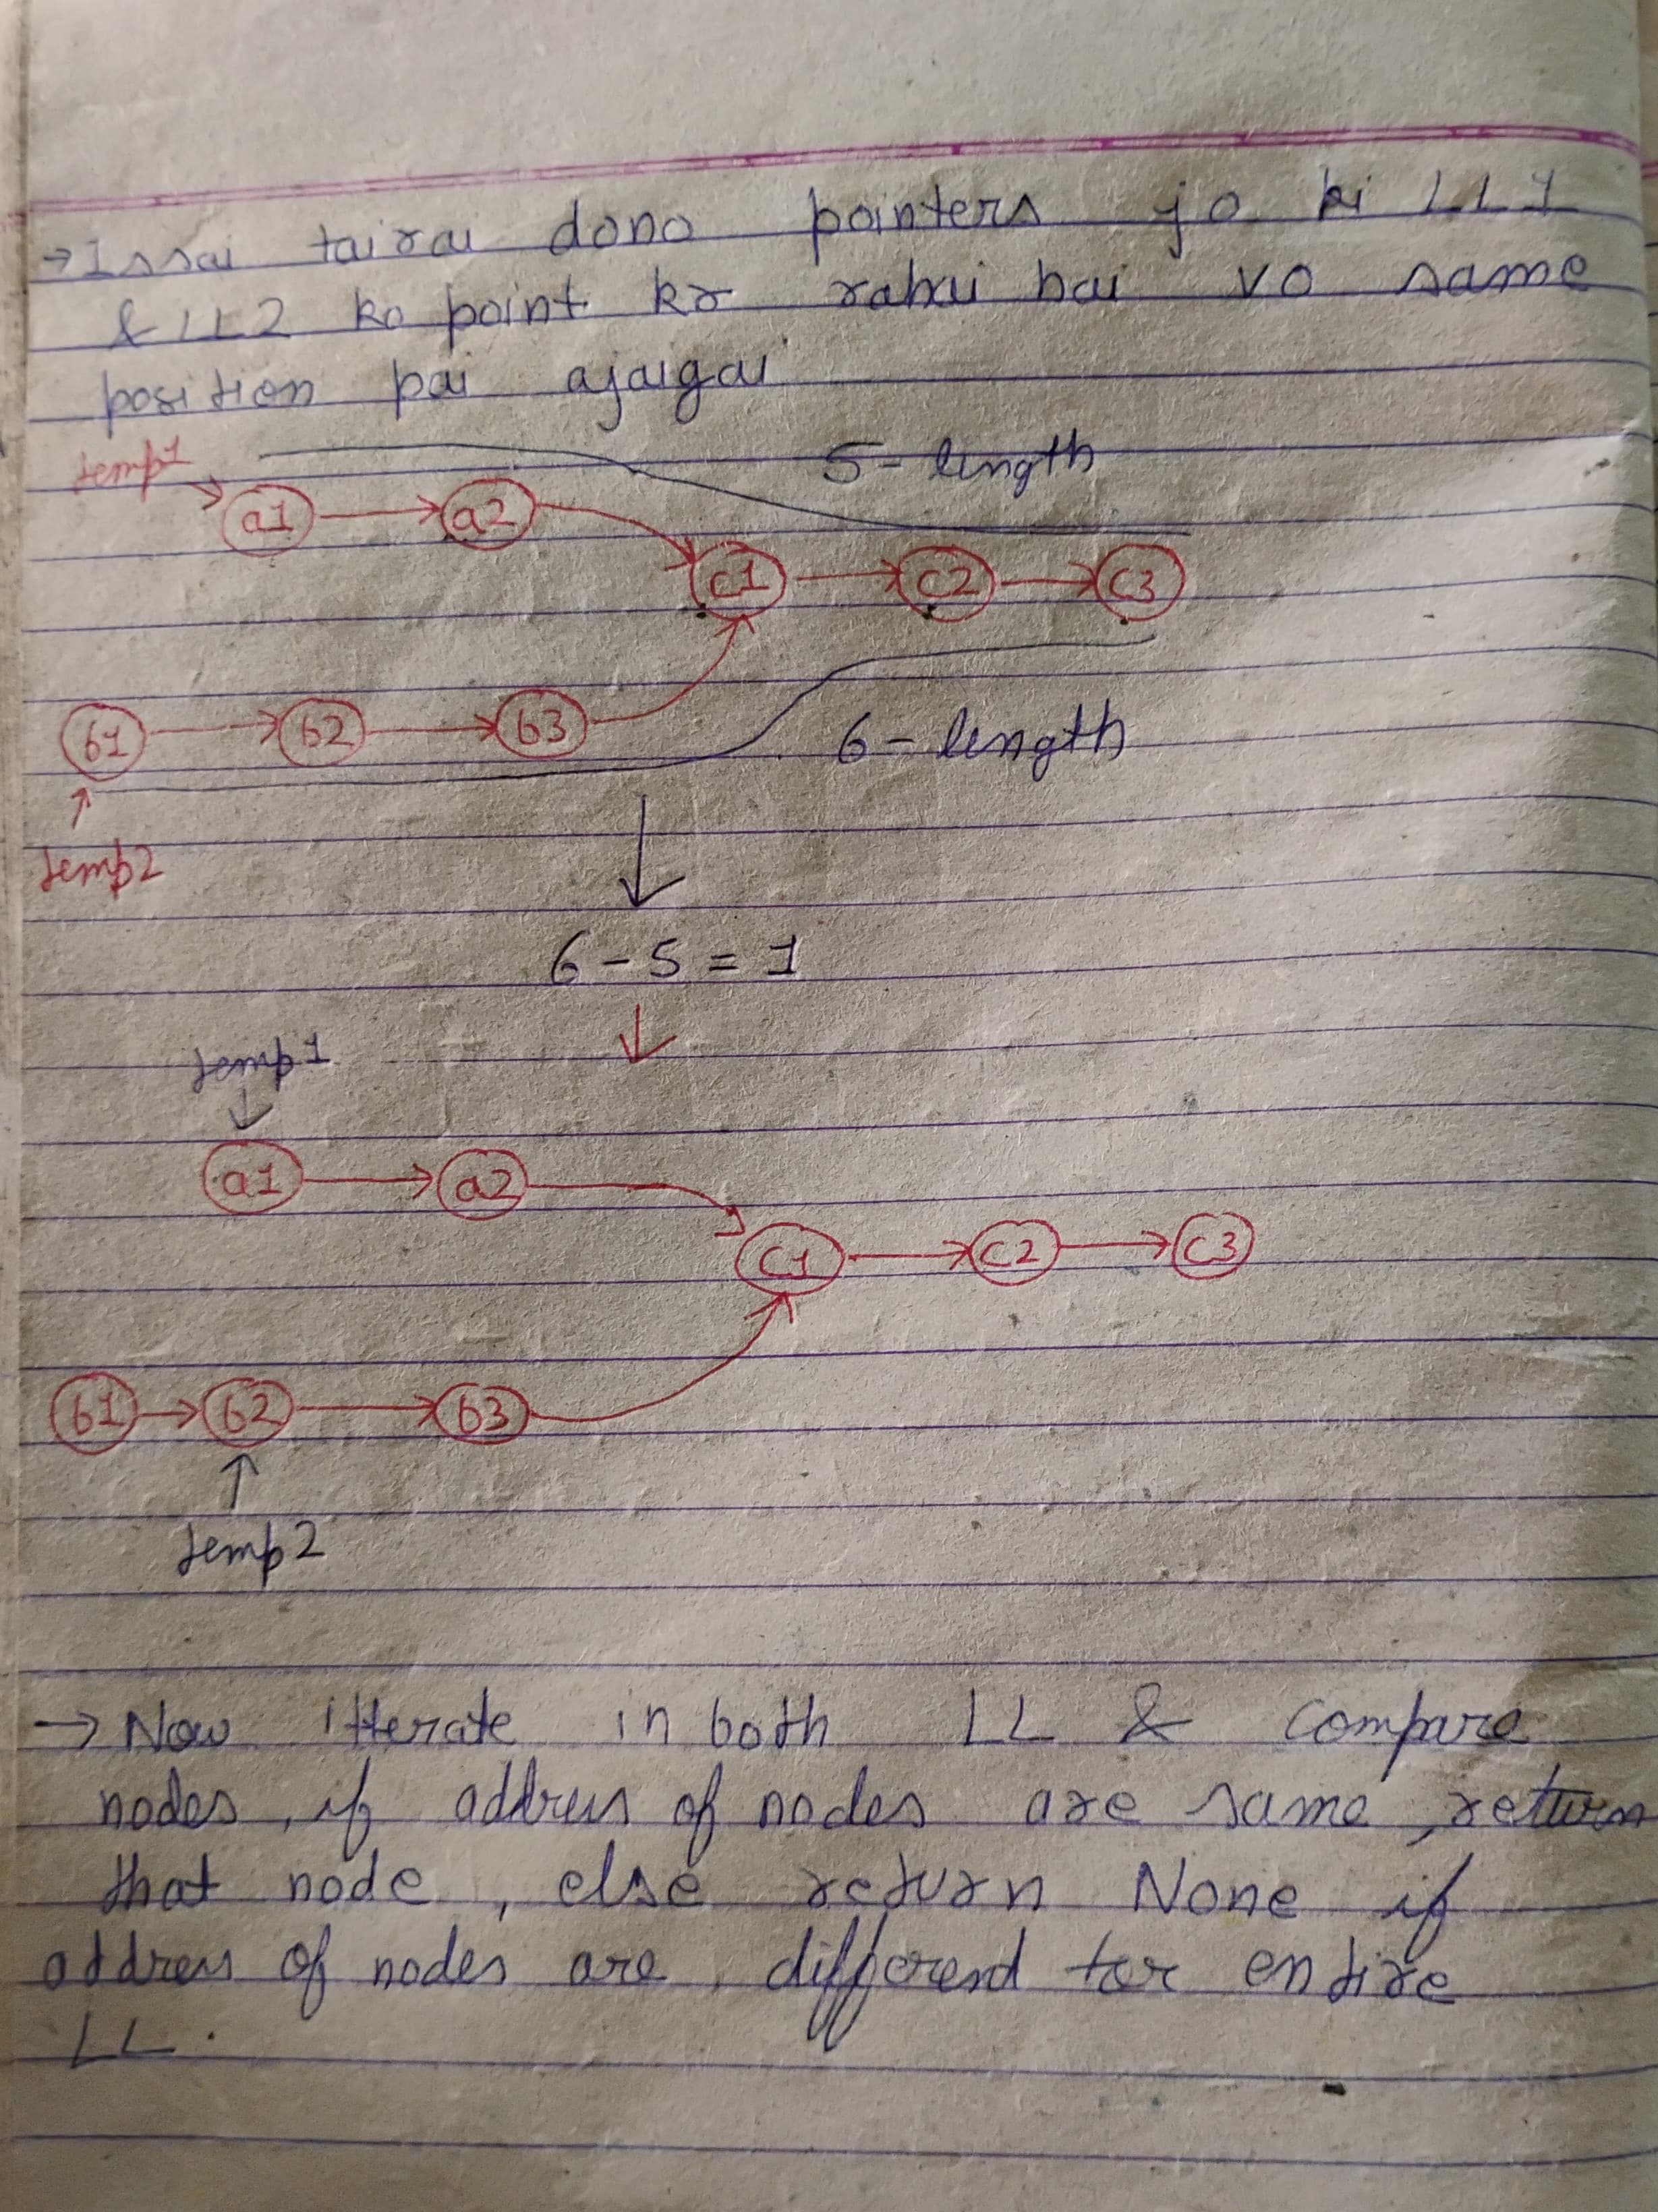 → Issai tairai dono pointers jo ki LL1
& LL2 ko point kr rahai hai vo same
position pai ajaigai
temp1
5 - length
a1 a2
c1 c2 c3
b1 b2 b3
6 - length
temp2
6 - 5 = 1
temp1
a1 a2
c1 c2 c3
b1 b2 b3
temp2
→ Now itterate in both LL & compare
nodes, if address of nodes are same, return
that node, else return None if
address of nodes are different for entire
LL.